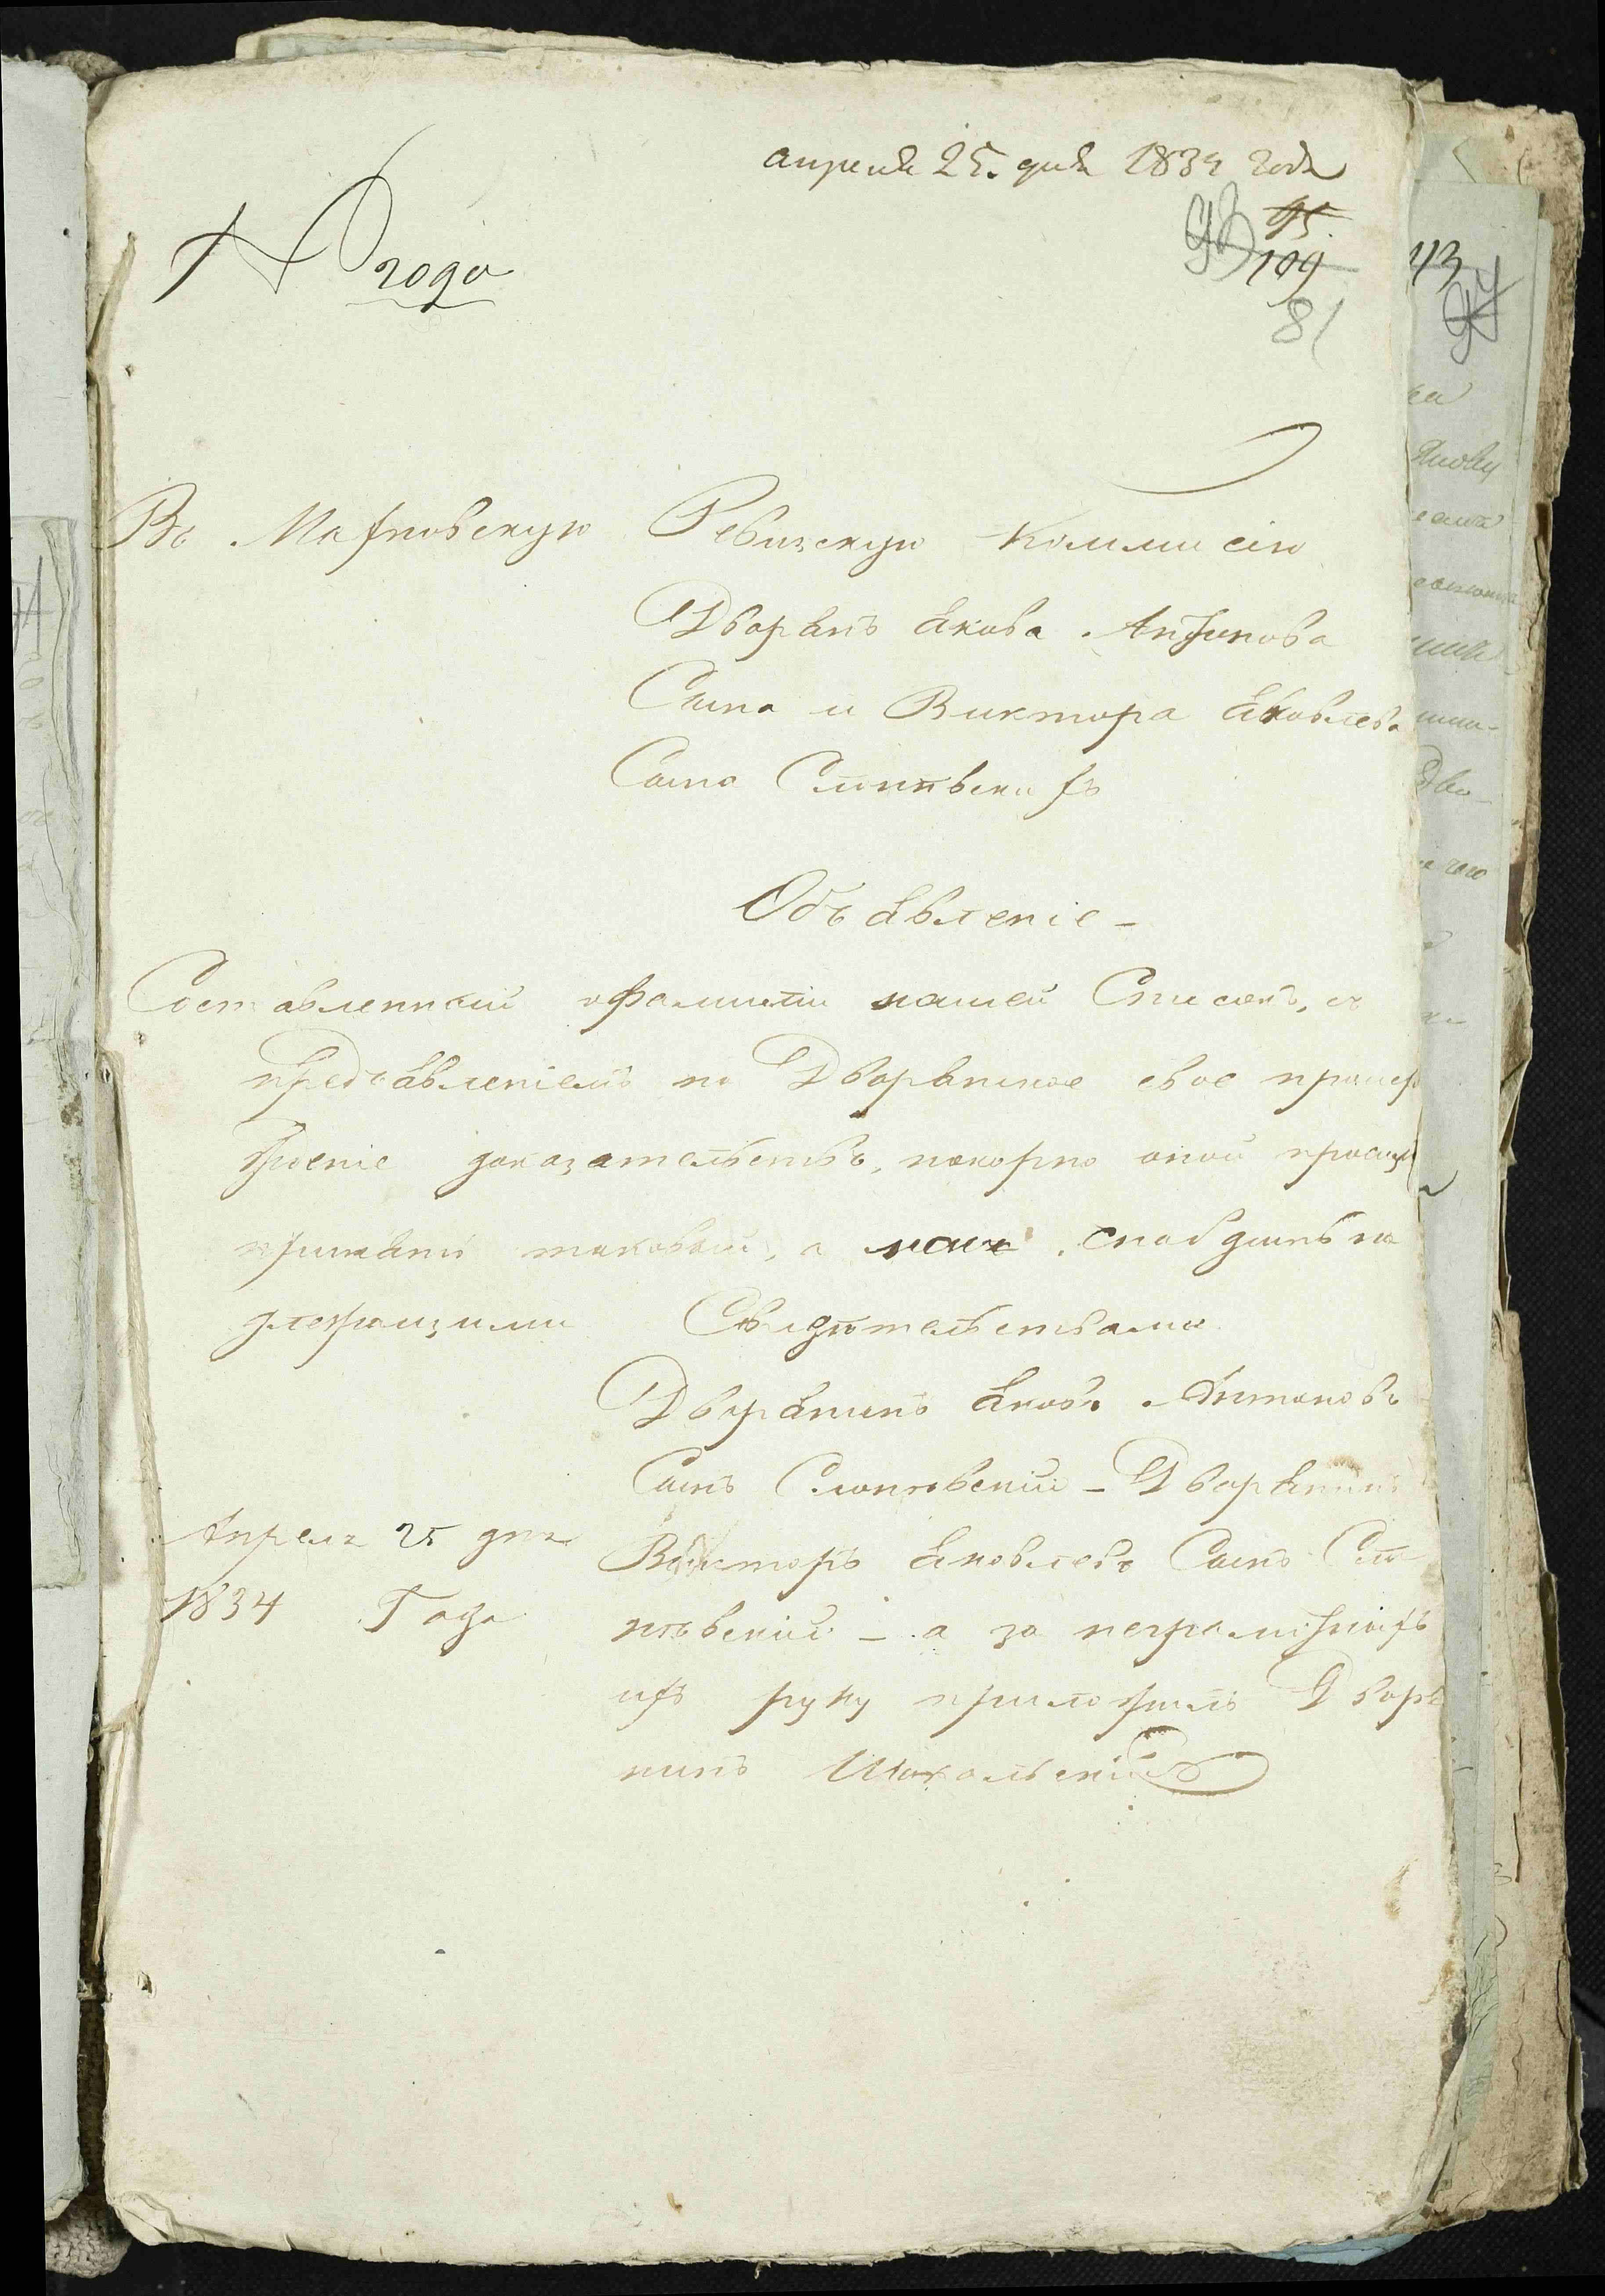 апреля 25. дня 1834 года
95.
93 109
81
113
94
Въ Махновскую Ревизскую Коммисію
Дворянъ Якова Антонова
Сына и Виктора Яковлева
Сына
Объявленіе –
Составленный о фамиліи нашей Списокъ, съ
предъявленіемъ на Дворянское свое происхо
жденіе доказательствъ, покорно оной просимъ
принять таковый, а насъ снабдить на
длежащими Свидетельствами
Дворянинъ Яковъ Антоновъ
Сынъ – Дворянинъ
Викторъ Яковлевъ Сынъ
– а за неграмотныхъ
ихъ руку приложилъ Дворя
нинъ
Апреля 25 дня
1834 Года